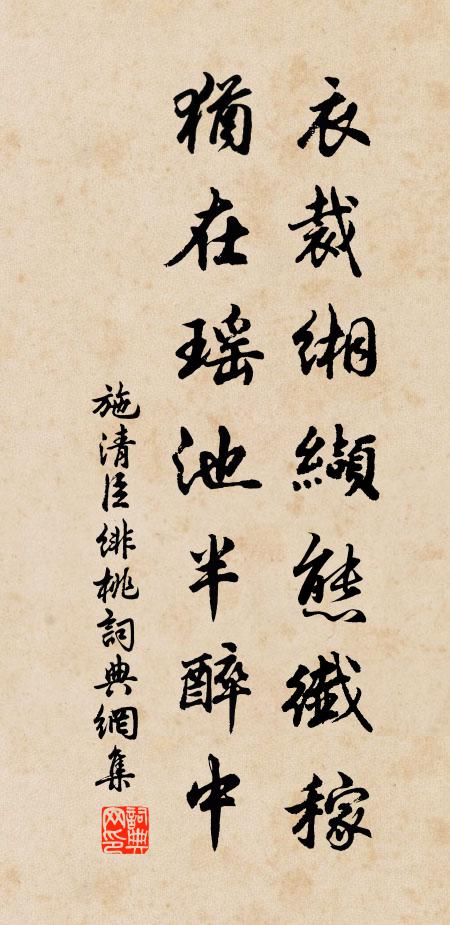 衣裁緗纈態纖稼
猶在瑶池半醉中
施清臣緋桃詞典網集
詞典网印